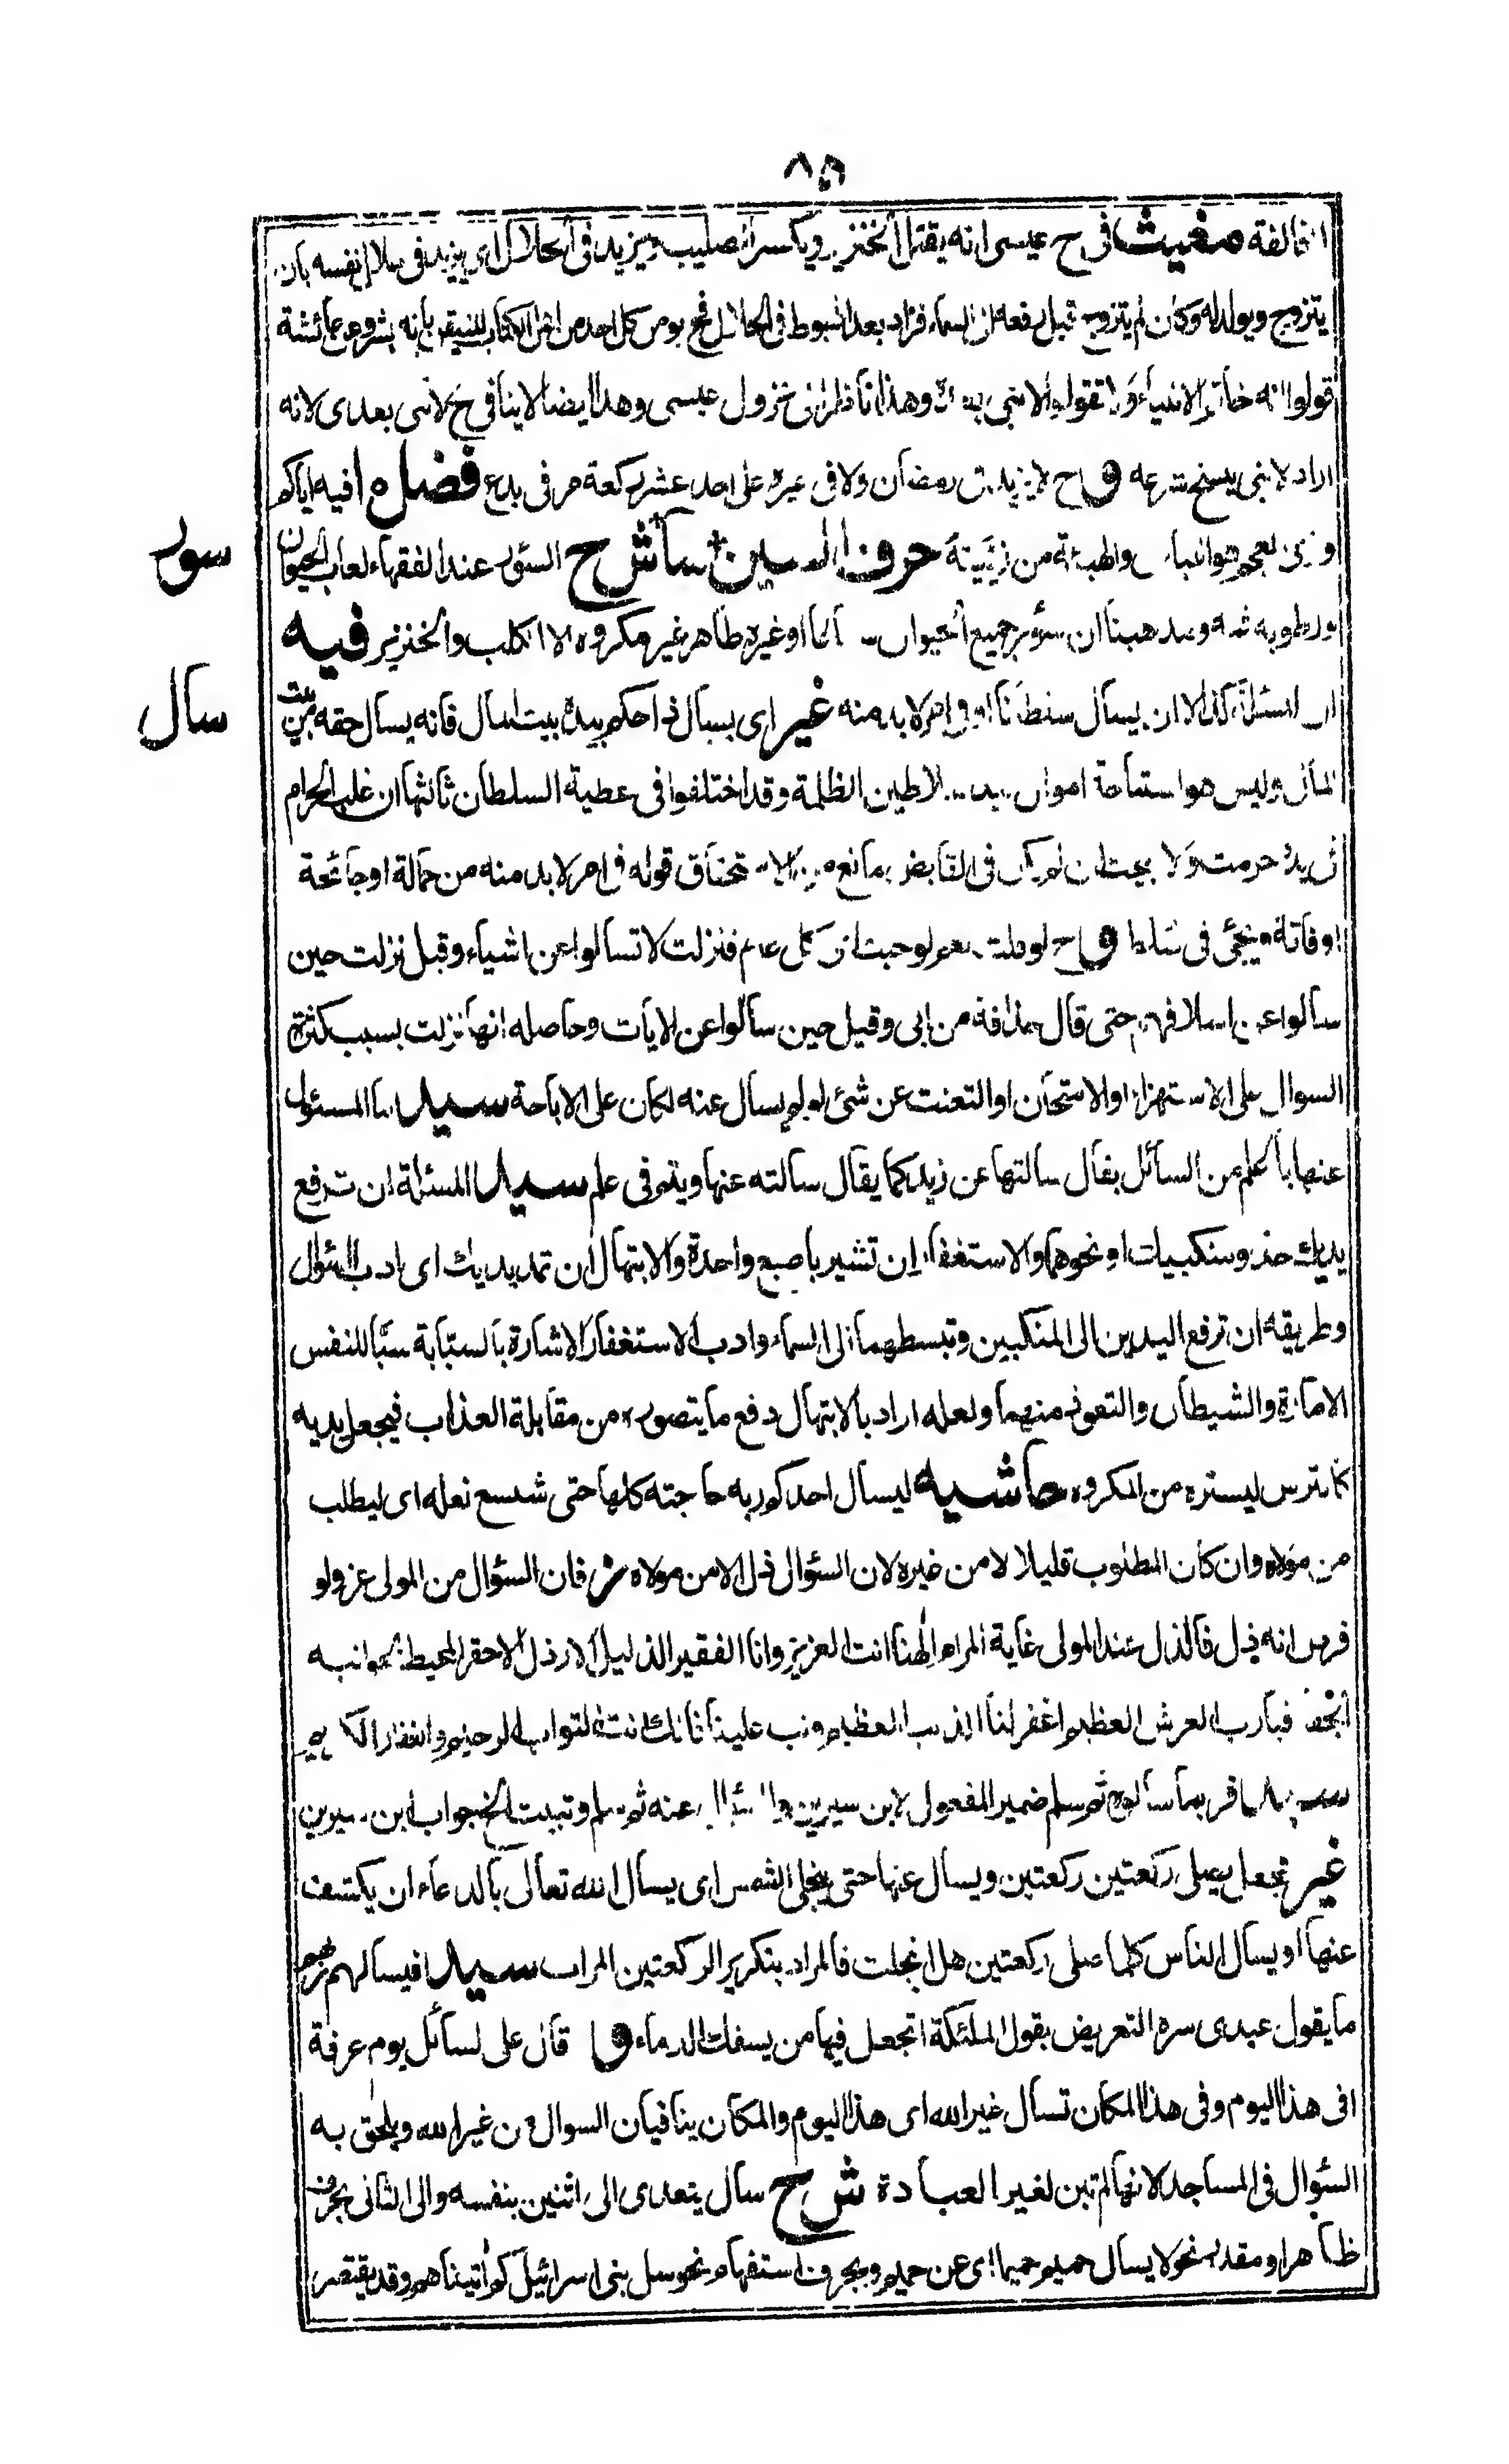 ٨٥
مغيث في ح عيسى انه يقتل الخنزير ويكسر الصليب ويزيد في الحلال اى يزيد في حلال نفسه بان
يتزوج ويولد له وكان لم يتزوج قبل رفعه الى السماء فزاد بعد الهبوط في الحلال فح يومن كل احد من اهل الكتاب بانه بشر وعن عائشة
قولوا انه خاتم الانبياء ولا تقولوا لا نبى بعده وهذا ناظر الى نزول عيسى وهذا ايضا لا ينافى ح لا نبى بعدى لانه
اراد لا نبى ينسخ شرعه ق ح لا يزيد في رمضان ولا في غيره على احد عشر ركعة مر في بدع فضل ه فيه اياكم
وزى العجم من زيّنته حرف السين سأ ش ح السؤر عند الفقهاء لعاب الحيوان
سور
ورطوبة فمه ومذهبنا ان سؤر جميع الحيوان او غيره طاهر غير مكروه الا الكلب والخنزير فيه
سأل
ان المسئلة كد الا ان يسأل سلطانا او في امر لا بد منه غير اى يسأل ذا حكم بيده بيت المال فانه يسأل حقه من بيت
المال وليس هو استباحة اموال السلاطين الظلمة وقد اختلفوا فى عطية السلطان ثالثها ان غلب الحرام
فى يده حرمت ولا يحل ان لم يكن فى القابض مانع من الاستحقاق قوله فى امر لا بد منه من حمالة او جائحة
او فاقة ويجئ فى سلط ق ح لو قلت نعم لوجبت كل عام فنزلت لا تسألوا عن اشياء وقيل نزلت حين
سألوا عن اسلافهم حتى قال حذافة من ابى وقيل حين سألوا عن الايات وحاصله انها نزلت بسبب كثرة
السوال على الاستهزاء او الامتحان او التعنت عن شئ لو لم يسأل عنه لكان على الاباحة سيد ما المسئول
عنها باعلم من السائل يقال سالتها عن زيد كما يقال سالته عنها ويتم فى علم سيد المسئلة ان ترفع
يديك حذو منكبيك او نحوهما والاستغفار ان تشير باصبع واحدة والابتهال ان تمد يديك اى ادب السؤال
وطريقه ان ترفع اليدين الى المنكبين وتبسطهما الى السماء وادب الاستغفار الاشارة بالسبّابة سبّا للنفس
الامارة والشيطان والتعوذ منهما ولعله اراد بالابتهال دفع ما يتصوره من مقابلة العذاب فيجعل يديه
كالترس ليستره من المكروه حاشيه ليسأل احدكم ربه حاجته كلها حتى شسع نعله اى ليطلب
من مولاه وان كان المطلوب قليلا لا من غيره لان السؤال ذل الا من مولاه ش فان السؤال من المولى عز ولو
فرض انه ذل فالذل عند المولى غاية المرام الهنا انت العزيز وانا الفقير الذليل الارذل الاحقر المحيط بجوانبه
فيارب العرش العظيم اغفر لنا الذنب العظيم وتب علينا فانك انت التواب الرحيم والغفار
سيد فربما سألوه ثم سلم ضمير المفعول لابن سيرين عنه ثم سلم ونبئت الخ جواب ابن سيرين
غير فجعل يصلى ركعتين ركعتين ويسأل عنها حتى ينجلى الشمس اى يسأل الله تعالى بالدعاء ان يكشف
عنها او يسأل الناس كلما صلى ركعتين هل انجلت فالمراد بتكرير الركعتين المرات سيد فيسألهم ربهم
ما يقول عبدى سره التعريض بقول الملئكة اتجعل فيها من يسفك الدماء ق ا قال على لسائل يوم عرفة
افى هذا اليوم وفى هذا المكان تسأل غير الله اى هذا اليوم والمكان ينافيان السوال من غير الله ويلحق به
السؤال فى المساجد لانها لم تبن لغير العبادة ش ح سأل يتعدى الى اثنين بنفسه والى الثانى بحرف
ظاهرا ومقدر نحو لا يسأل حميم حميما اى عن حميم وبحرف استفهام نحو سل بنى اسرائيل كم اتيناهم وقد يقتصر